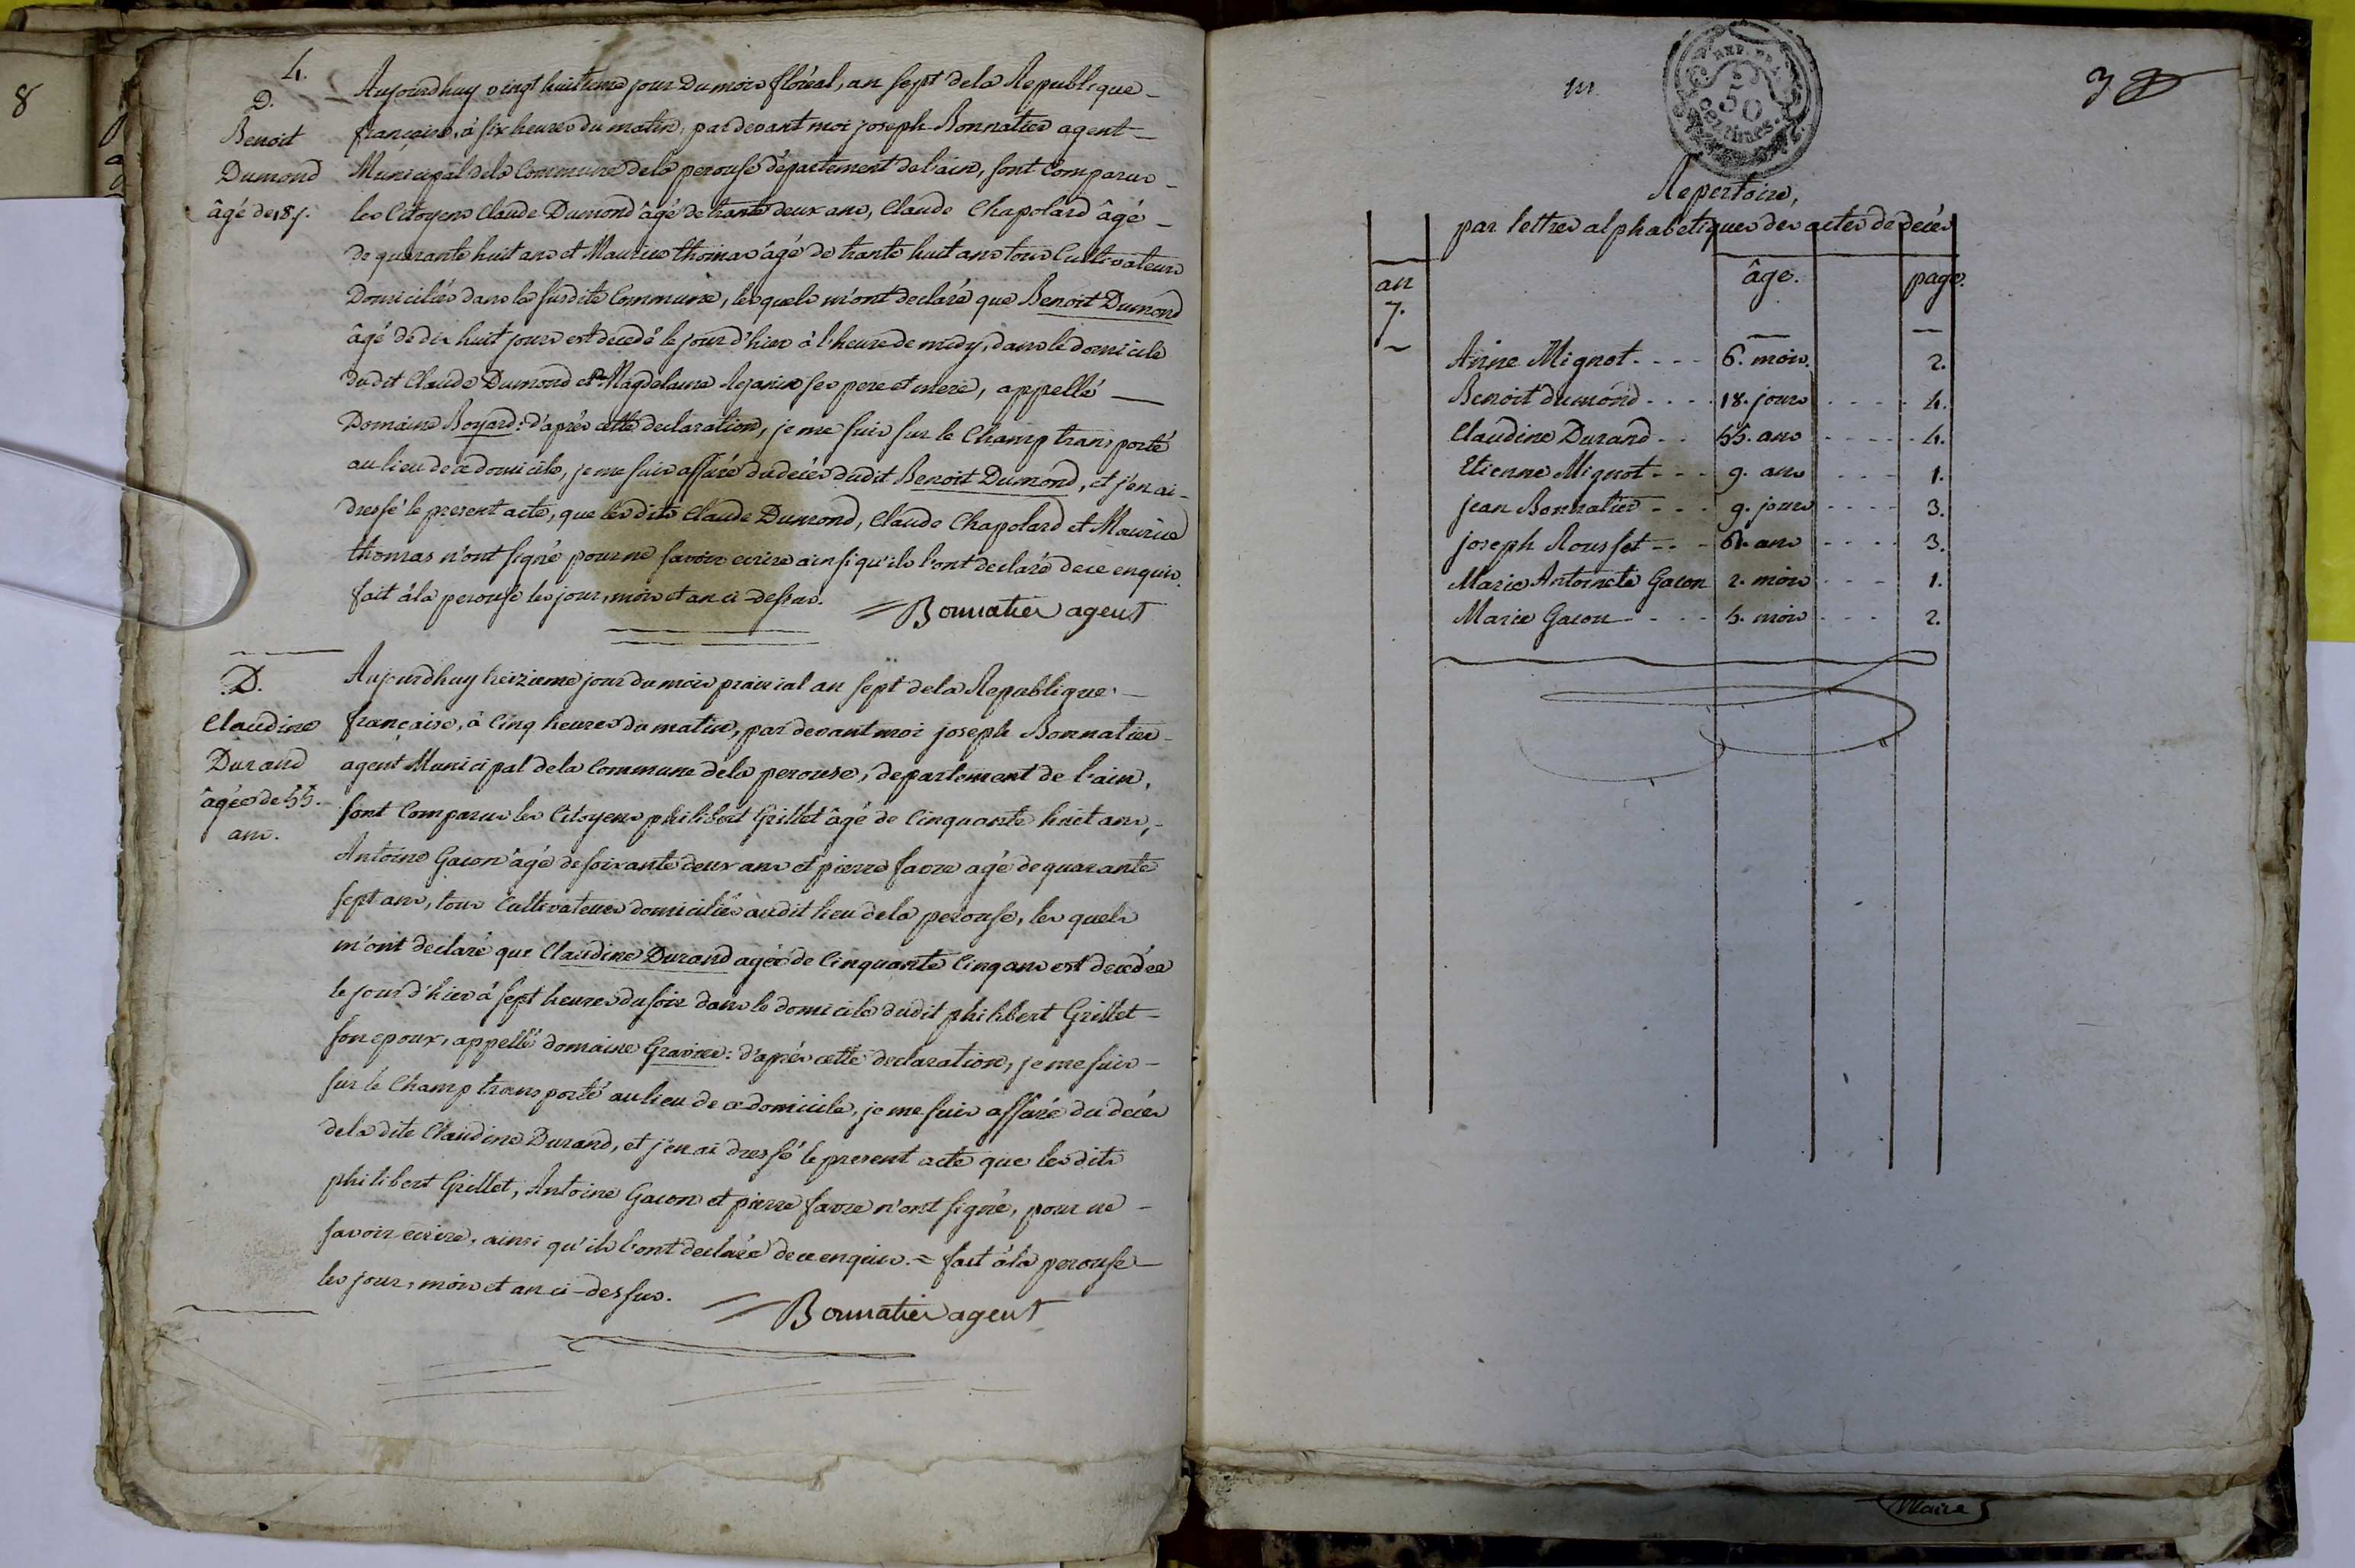 8
4.
D.
Benoit
Dumond
âgé de 18 j.
Aujourdhuy vingt huitieme jour du mois floréal, an sept dela Republique
française, à six heures du matin, par devant moi joseph Bonnatier agent
Municipal dela Commune dela perouse département de l'ain, sont Comparus
les Citoyens Claude Dumond âgé de trante deux ans, Claude Chapolard âgé
de quarante huit ans et Maurice thomas âgé de trante huit ans tous Cultivateurs
Domiciliés dans la susdite Commune, lesquels m'ont declaré que Benoit Dumond
âgé de dix huit jours est decedé le jour d'hier à l'heure de midy, dans le domicile
dudit Claude Dumond et Magdelaine Rejanin ses pere et mere, appellé
Domaine Boyard: d'après cette declaration, je me suis sur le Champ transporté
au lieu de ce domicile, je me suis assuré du decès dudit Benoit Dumond, et j'en ai
dressé le present acte, que lesdits Claude Dumond, Claude Chapolard et Maurice
thomas n'ont signé pour ne savoir ecrire ainsi qu'ils l'ont declaré de ce enquis.
fait à la perouse les jour, mois et an ci-dessus. Bonnatier agent
D.
Claudine
Durand
âgée de 55.
ans.
Aujourdhuy treizieme jour du mois prairial an sept dela Republique
française, à Cinq heures du matin, par devant moi joseph Bonnatier
agent Municipal dela Commune dela perouse, departement de l'ain,
sont Comparus les Citoyens philibert Grillet âgé de Cinquante huit ans,
Antoine Gacon âgé de soixante deux ans et pierre favre agé de quarante
sept ans, tous Cultivateurs domiciliés audit lieu dela perouse, les quels
m'ont declaré que Claudine Durand agée de Cinquante Cinq ans est decedée
le jour d'hier à sept heures du soir dans le domicile dudit philibert Grillet
son epoux, appellé domaine Gravier: d'après cette declaration, je me suis
sur le Champ transporté au lieu de ce domicile, je me suis assuré du decès
dela dite Claudine Durand, et j'en ai dressé le present acte que les dits
philibert Grillet, Antoine Gacon et pierre favre n'ont signé, pour ne
savoir ecrire, ainsi qu'ils l'ont declaré de ce enquis. = fait à la perouse
les jour, mois et an ci-dessus. Bonnatier agent
REP. FRA.
50
centimes.
3
Repertoire,
par lettres alphabetiques des actes de decès
an âge. page.
7.
Anne Mignot. - - - 6. mois. 2.
Benoit dumond. - - - 18. jours - - - - 4.
Claudine Durand - - 55. ans - - - - - 4.
Etienne Mignot - - - 9. ans - - - 1.
jean Bonnatier - - - 9. jours - - - - 3.
joseph Rousset - - - 61. ans - - - - 3.
Marie Antoinete Gacon 2. mois - - - 1.
Marie Gacon - - - - 5. mois - - - 2.
Maire